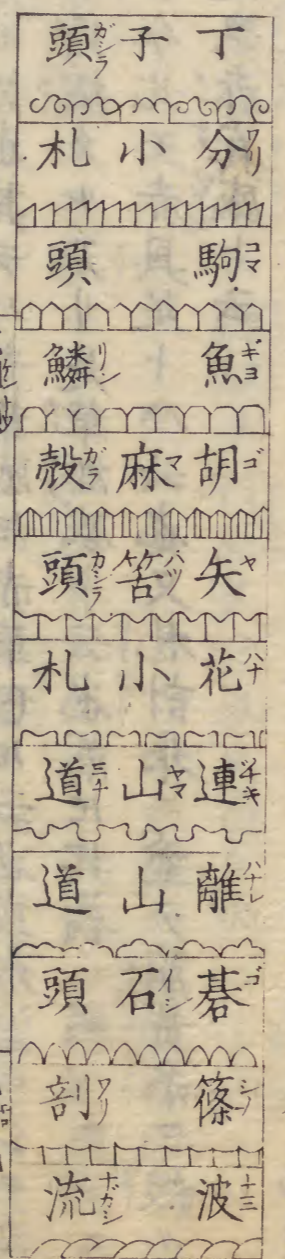 丁子頭ガシラ
分ワリ小札
駒コマ頭
魚ギヨ鱗リン
胡ゴ麻マ殻ガラ
矢ヤ筈ハツ頭カシラ
花ハナ小札
連ツヾキ山ヤマ道ミチ
離ハナレ山道
碁ゴ石イシ頭
篠シノ剖ワリ
波ナミ流ナガシ